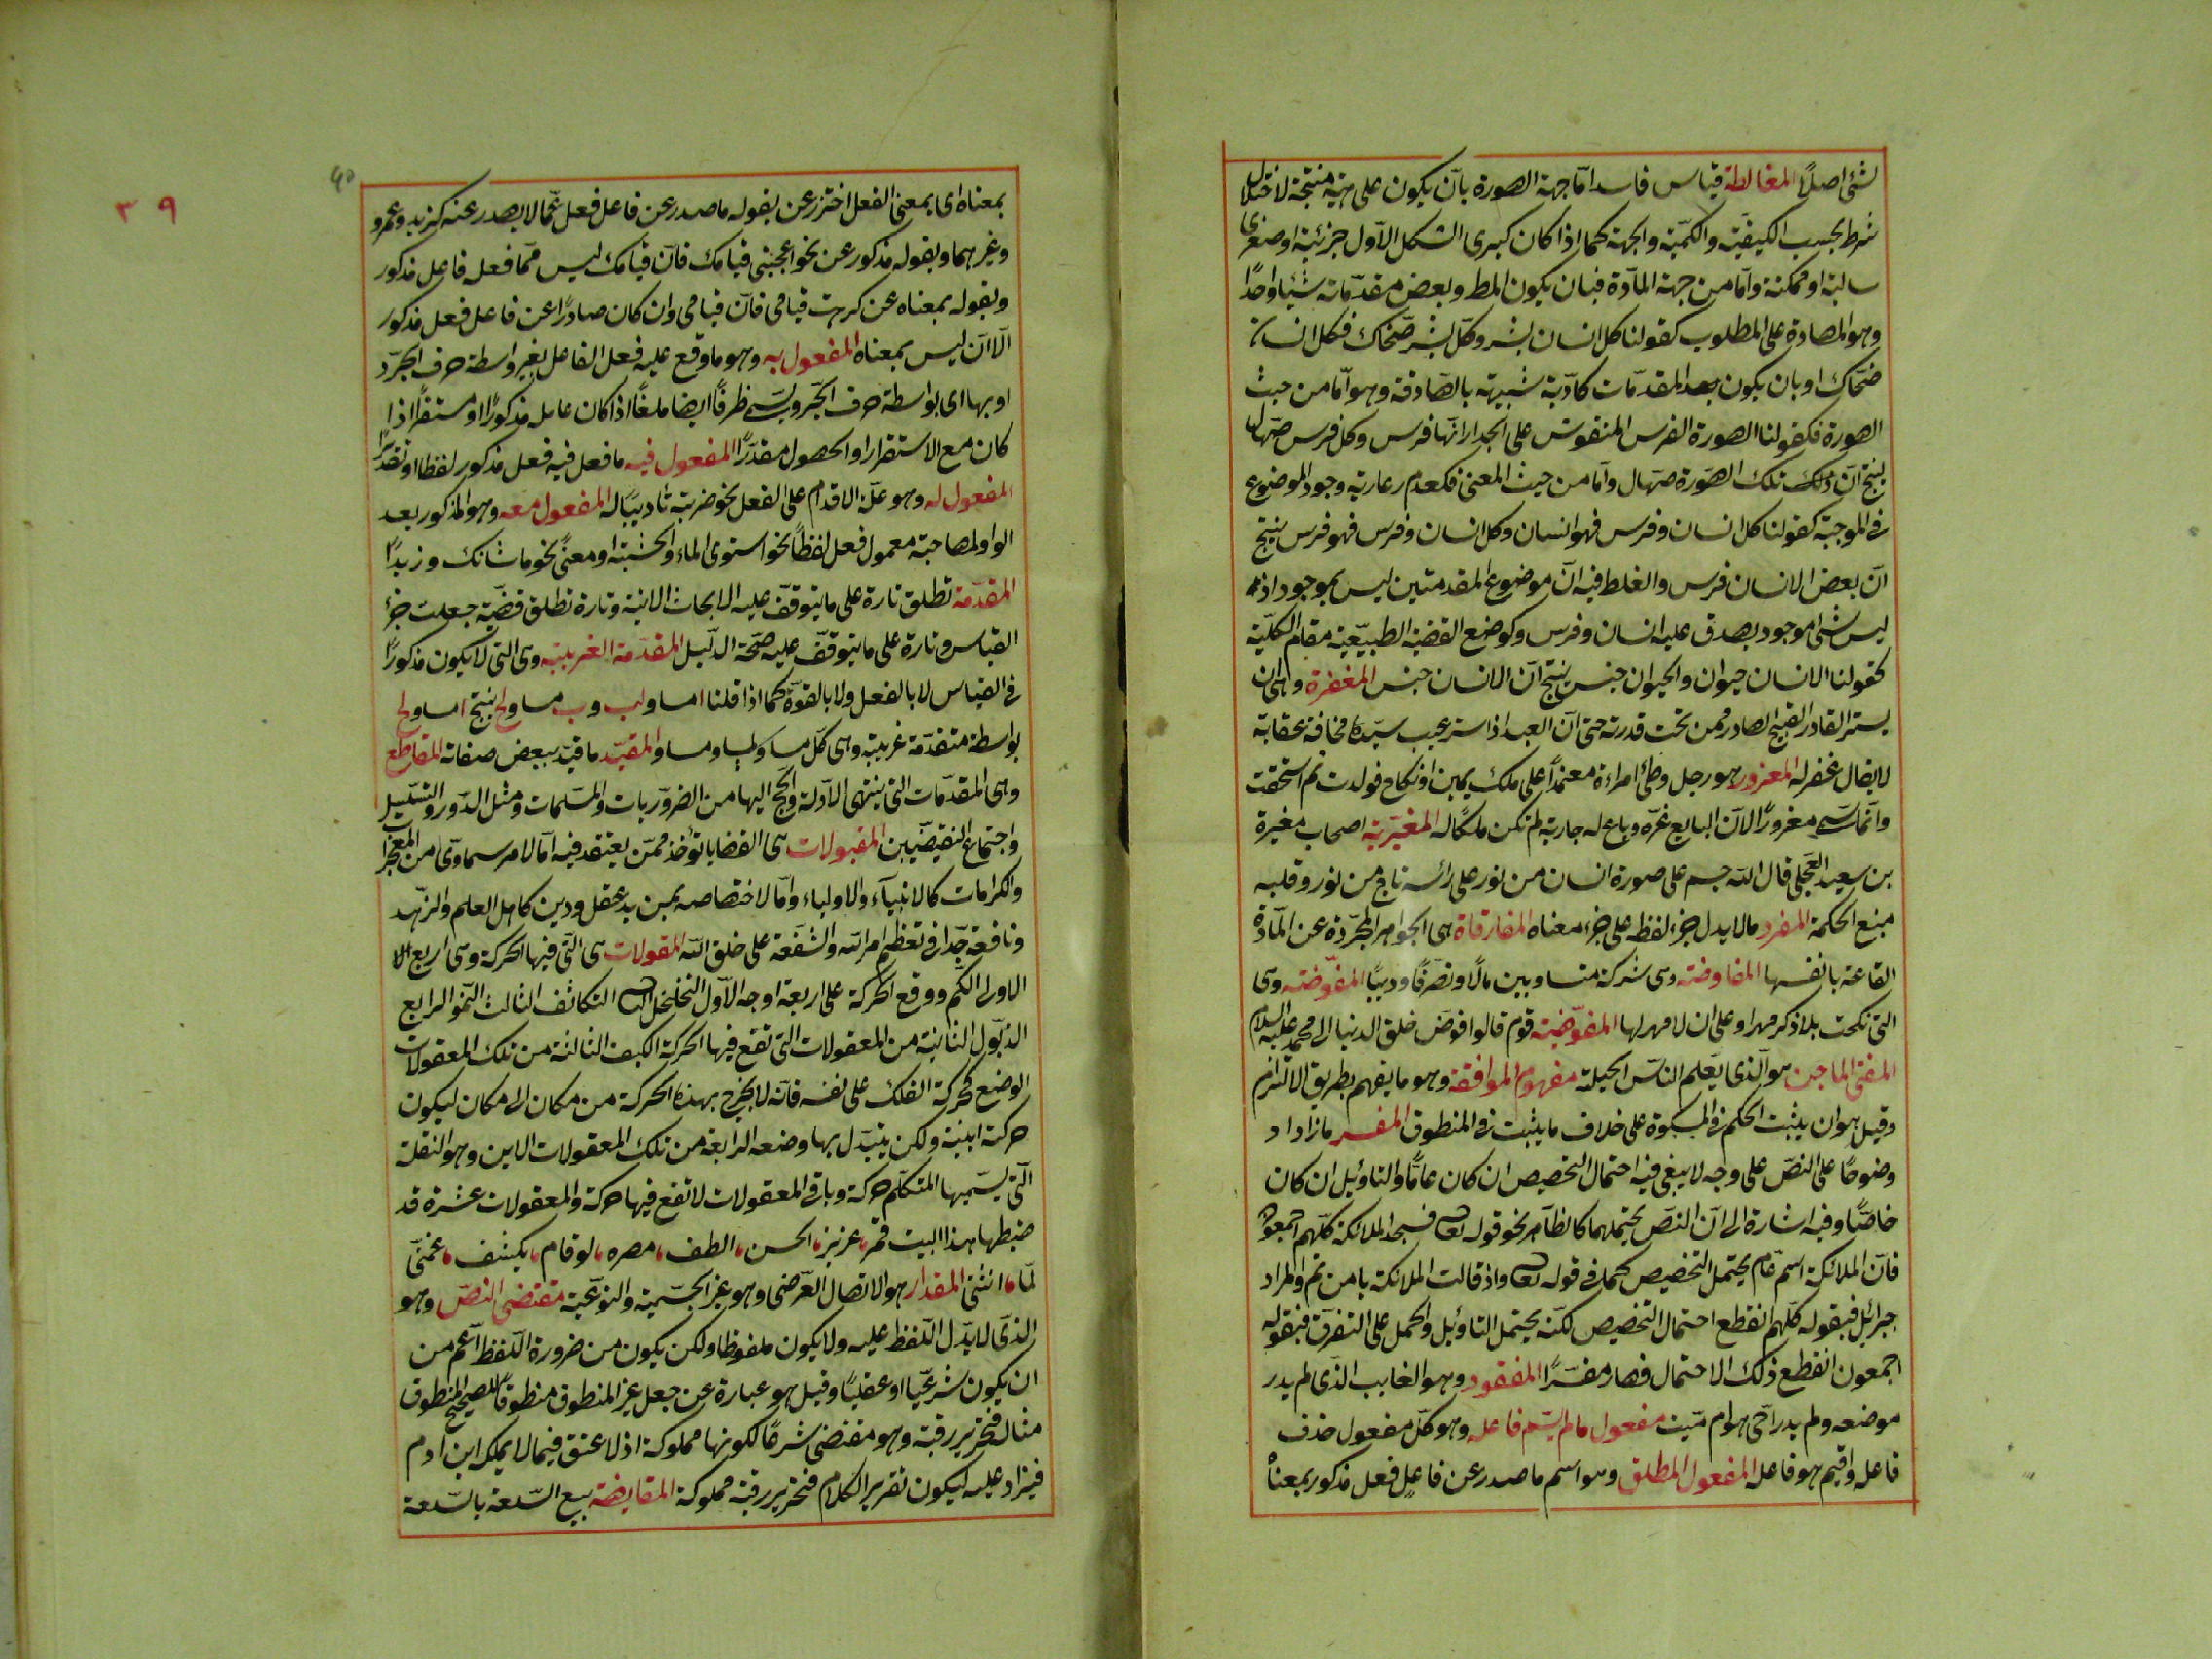 لشئ اصلا المغالطة قياس فاسد اما جهة الصورة بان يكون على هيئة منتجة لاختلال
شرط بحسب الكيفية والكمية والجهة كما اذا كان كبرى الشكل الاول جزئية او صغرى
سالبة او ممكنة واما من جهة المادة فبان يكون المط وبعض مقدماته شيئا واحدا
وهو المصادرة على المطلوب كقولنا كل انسان بشر وكل بشر ضحاك فكل انسان
ضحاك او بان يكون بعد المقدمات كاذبة شبيهة بالصادقة وهو اما من حيث
الصورة فكقولنا الصورة الفرس المنقوش على الجدار انها فرس وكل فرس صهال
ينتج ان ذلك تلك الصورة صهال واما من حيث المعنى فكعدم رعاية وجود الموضوع
فى الموجبة كقولنا كل انسان وفرس فهو انسان وكل انسان وفرس فهو فرس ينتج
ان بعض الانسان فرس والغلط فيه ان موضوع المقدمتين ليس بموجود اذ
ليس شئ موجود يصدق عليه انسان وفرس وكوضع القضية الطبيعية مقام الكلية
كقولنا الانسان حيوان والحيوان جنس ينتج ان الانسان جنس المغفرة وهى ان
يستر القادر القبيح الصادر ممن تحت قدرته حتى ان العبد اذا ستر عيب سيده مخافة عقابه
لا يقال غفر له المغرور هو رجل وطئ امراءة معتمدا على ملك يمين او نكاح فولدت ثم استحقت
وانما سمى مغرورا لان البايع غره وباع له جارية لم تكن ملكا له المغيرية اصحاب مغيرة
بن سعيد العجلى قال الله جسم على صورة انسان من نور على رأسه تاج من نور وقلبه
منبع الحكمة المفرد ما لا يدل جزء لفظه على جزء معناه المفارقاة هى الجواهر المجردة عن المادة
القاعة بانفسها المفاوضة وهى شركة متساويين مالا وتصرفا ودينا المفوضة وهى
التى نكحت بلا ذكر مهر او على ان لا مهر لها المفوضية قوم قالوا فوض خلق الدنيا الى محمد عليه السلام
المفتى الماجن هو الذى يعلم الناس الحيلة مفهوم الموافقة وهو ما يفهم بطريق الالتزام
وقيل هو ان يثبت الحكم فى المسكوة على خلاف ما يثبت فى المنطوق المفسر ما زاد اد
وضوحا على النص على وجه لا يبغى فيه احتمال التخصيص ان كان عاما والتاويل ان كان
خاصا وفيه اشارة الى ان النص يحتملهما كالظاهر نحو قوله تعالى فسجد الملائكة كلهم اجمعون
فان الملائكة اسم عام يحتمل التخصيص كما فى قوله تعالى واذ قالت الملائكة يا مريم والمراد
جبرائيل فبقوله كلهم انقطع احتمال التخصيص لكنه يحتمل التاويل والحمل على التفرق فبقوله
اجمعون انقطع ذلك الاحتمال فصار مفسرا المفقود وهو الغايب الذى لم يدر
موضعه ولم يدر احى هو ام ميت مفعول ما لم يسم فاعله وهو كل مفعول حذف
فاعله واقيم هو فاعله المفعول المطلق وهو اسم ما صدر عن فاعل فعل مذكور بمعناه
٣٩
٤٠
بمعناه اى بمعنى الفعل احترز عن بقوله ما صدر عن فاعل فعل عما لا يصدر عنه كزيد وعمرو
وغيرهما وبقوله مذكور عن نحو اعجبنى قيامك فان قيامك ليس مما فعله فاعل مذكور
وبقوله بمعناه عن كرهت قيامى فان قيامى وان كان صادرا عن فاعل فعل مذكور
الا ان ليس بمعناه المفعول به وهو ما وقع عليه فعل الفاعل بغير واسطة حرف الجرد
او بها اى بواسطة حرف الجر ويسمى ظرفا ايضا ملغا اذا كان عامله مذكورا او مستقرا اذا
كان مع الاستقرار او الحصول مقدرا المفعول فيه ما فعل فيه فعل مذكور لفظا او تقديرا
المفعول له وهو علة الاقدام على الفعل نحو ضربته تاديبا له المفعول معه وهو المذكور بعد
الواو لمصاحبة معمول فعل لفظا نحو استوى الماء والخشبة او معنى نحو ما شانك وزيدا
المقدمة تطلق تارة على ما يتوقف عليه الابحاث الاتية وتارة تطلق قضية جعلت جزء
القياس وتارة على ما يتوقف عليه صحة الدليل المقدمة الغريبة وهى التى لا يكون مذكورا
فى القياس لا بالفعل ولا بالقوة كما اذا قلنا ا مساو لب وب مساو لج ينتج ا مساو لج
بواسطة متقدمة غريبة وهى كل مساو لمساو مساو المقيد ما قيد ببعض صفاته المقاطع
وهى المقدمات التى ينتهى الادلة والحجج اليها من الضروريات والمسلمات ومثل الدور والتسلسل
واجتماع النقيضيين المقبولات هى القضايا تؤخذ ممن يعتقد فيه اما لامر سماوى من المعجزا
والكرامات كالانبيآء والاولياء واما لاختصاصه بمزيد عقل ودين كامل العلم والزهد
ونافعة جدا فى تعظيم امر الله والشفقة على خلق الله المقولات هى التى فيها الحركة وهى اربع الا
الاولى الكم ووقع الحركة على اربعة اوجه الاول التخلخل الثانى التكاثف الثالث النمو الرابع
الذبول الثانية من المعقولات التى تقع فيها الحركة الكيف الثالثة من تلك المعقولات
الوضع كحركة الفلك على نفسه فانه لا يخرج بهذه الحركة من مكان الى مكان ليكون
حركته اينية ولكن يتبدل بها وضعه الرابعة من تلك المعقولات الاين وهو النقلة
التى يسميها المتكلم حركة وباقى المعقولات لا تقع فيها حركة والمعقولات عشرة قد
ضبطها هذا البيت قمر، عزيز، الحسن، الطف، مصره، لو قام، يكشف، غمتى
لما، انثنى المقدار هو الاتصال العرضى وهو غير الجسمية والنوعية مقتضى النص وهو
الذى لا يدل اللفظ عليه ولا يكون ملفوظا ولكن يكون من ضرورة اللفظ اعم من
ان يكون شرعيا او عقليا وقيل هو عبارة عن جعل غير المنطوق منطوقا لتصحيح المنطوق
مثاله فتحرير رقبة وهو مقتضى شرعا لكونها مملوكة اذ لا عتق فيما لا يملكه ابن ادم
فيزاد عليه ليكون تقرير الكلام فتحرير رقبة مملوكة المقايضة بيع السلعة بالسلعة